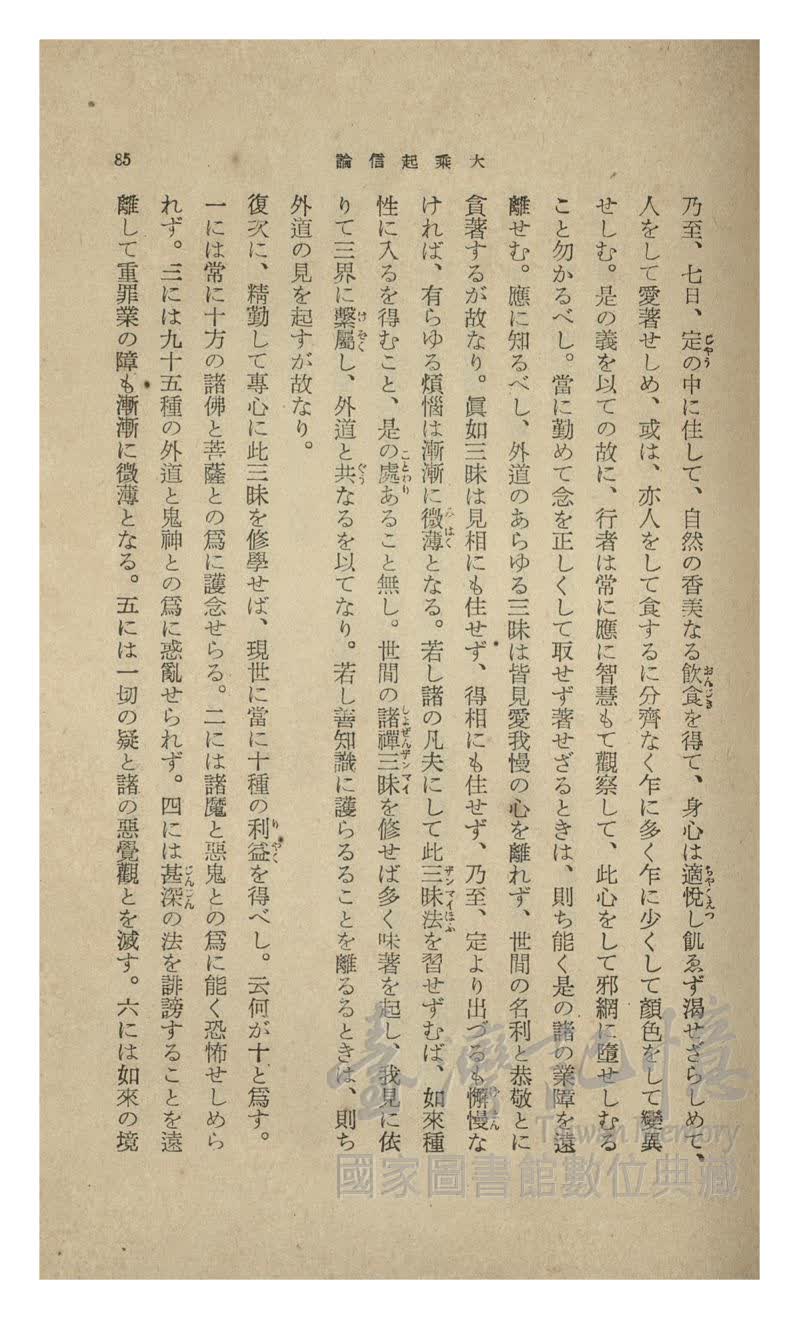 大乘起信論
85
乃至、七日、定の中に住して、自然の香美なる飮食を得て、身心は適悅し飢ゑず渴せざらしめて、
人をして愛著せしめ、或は、亦人をして食するに分齊なく乍に多く乍に少くして顏色をして變異
せしむ。是の義を以ての故に、行者は常に應に智慧もて觀察して、此心をして邪網に墮せしむる
こと勿かるべし。當に勤めて念を正しくして取せず著せざるときは、則ち能く是の諸の業障を遠
離せむ。應に知るべし、外道のあらゆる三昧は皆見愛我慢の心を離れず、世間の名利と恭敬とに
貪著するが故なり。眞如三昧は見相にも住せず、得相にも住せず、乃至、定より出づるも懈慢な
ければ、有らゆる煩惱は漸漸に微薄となる。若し諸の凡夫にして此三昧法を習せずむば、如來種
性に入るを得むこと、是の處あること無し。世間の諸禪三昧を修せば多く味著を起し、我見に依
りて三界に繫屬し、外道と共なるを以てなり。若し善知識に護らるることを離るるときは、則ち
外道の見を起すが故なり。
復次に、精勤して專心に此三昧を修學せば、現世に當に十種の利益を得べし。云何が十と爲す。
一には常に十方の諸佛と菩薩との爲に護念せらる。二には諸魔と惡鬼との爲に能く恐怖せしめら
れず。三には九十五種の外道と鬼神との爲に惑亂せられず。四には甚深の法を誹謗することを遠
離して重罪業の障も漸漸に微薄となる。五には一切の疑と諸の惡覺觀とを滅す。六には如來の境
臺灣記憶
Taiwan Memory
國家圖書館數位典藏